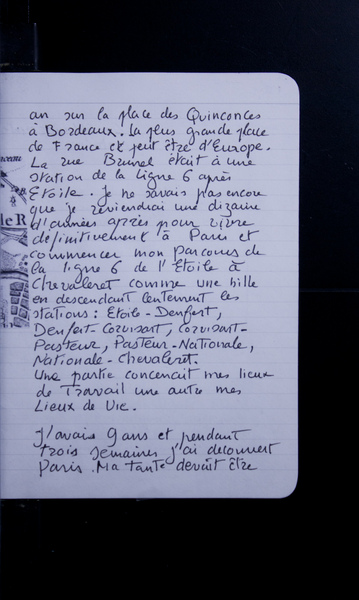 an sur la place des Quinconces
à Bordeaux. La plus grande place
de France et peut être d'Europe.
La rue Brunel était à une
station de la ligne 6 après
Etoile. Je ne savais pas encore
que je reviendrai une dizaine
d'années après pour vivre
définitivement à Paris et
commencer mon parcours de
la ligne 6 de l'Etoile à
Chevaleret comme une bille
en descendant lentement les
stations : Etoile - Denfert,
Denfert-Corvisart, Corvisart-
Pasteur, Pasteur-Nationale,
Nationale-Chevaleret.
Une partie concenait mes lieux
de Travail une autre mes
Lieux de Vie.
J'avais 9 ans et pendant
trois semaines j'ai découvert
Paris. Ma tante devait être